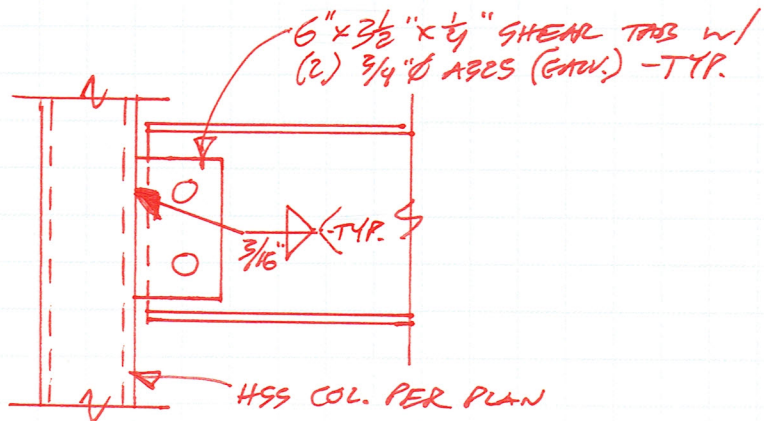 6" x 3 1/2" x 1/4" SHEAR TAB w/
(2) 3/4" Ø A325 (GALV.) -TYP.
3/16"
-TYP.
HSS COL. PER PLAN